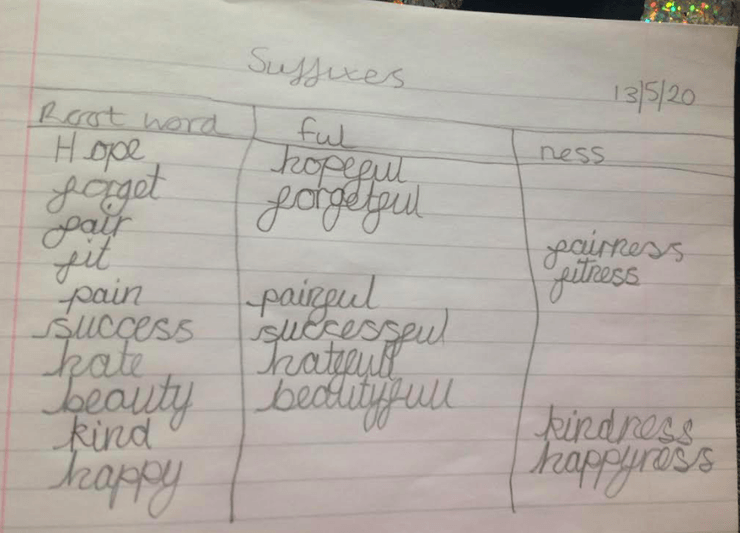 Suffixes
13/5/20
Root word ful ness
Hope hopeful
forget forgetful
fair fairness
fit fitness
pain painful
success successful
hate hateful
beauty beautyfull
kind kindness
happy happyness